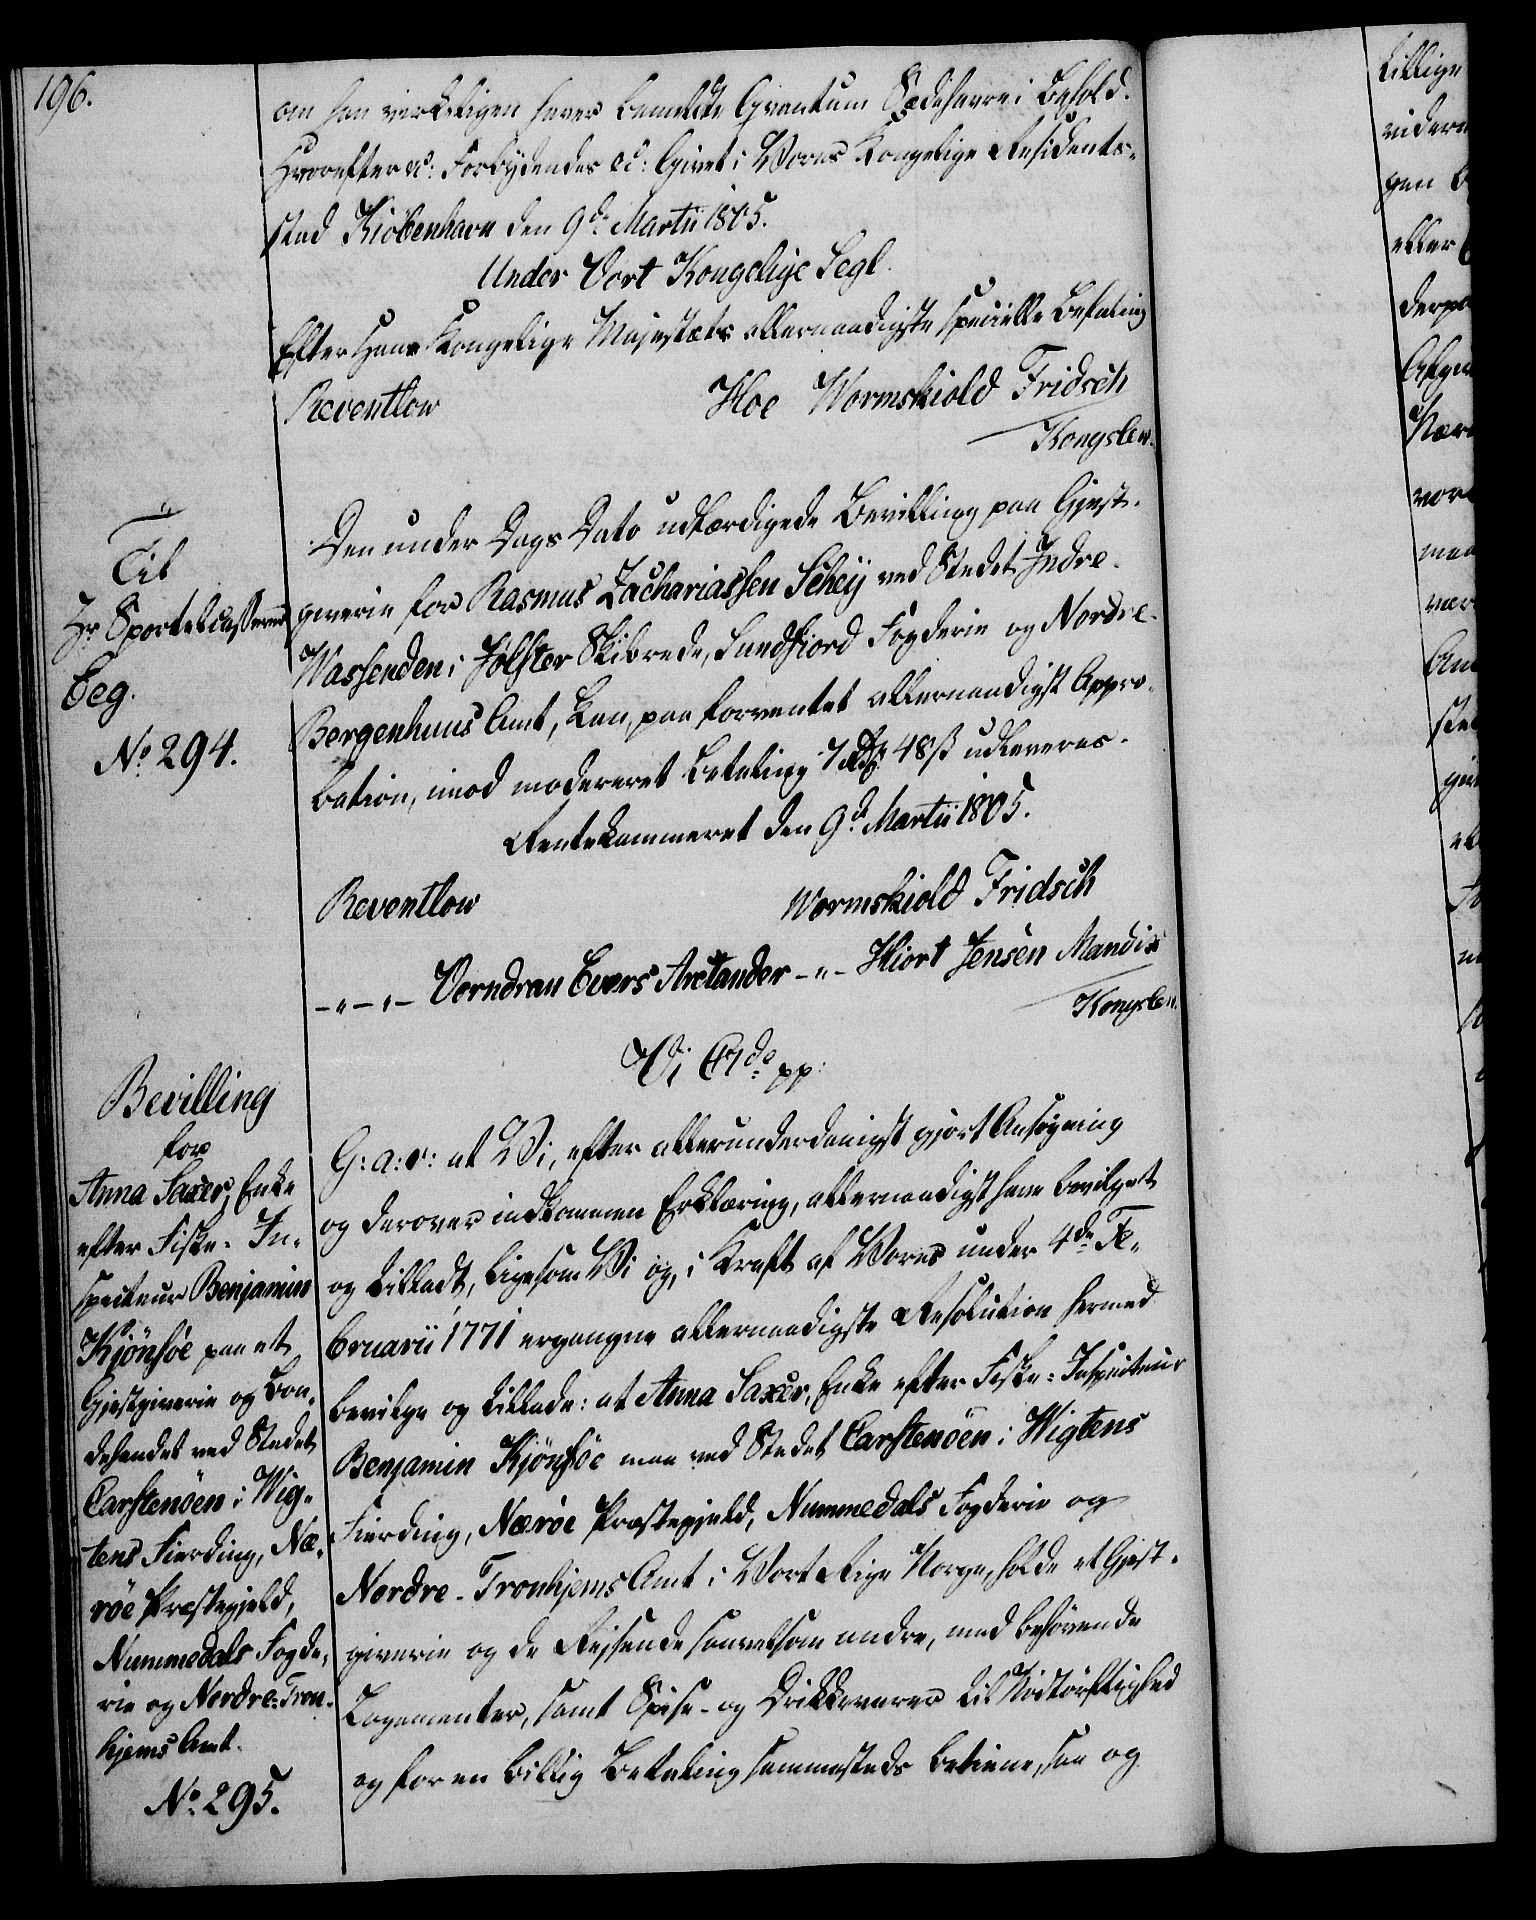 196.
om han virkeligen haver bemeldte Qvantum Sædehavre i Behold.
Hvorefter &c: Forbydendes &c: Givet i Vores Kongelige Residents-
stad Kiöbenhavn den 9de Martii 1805.
Under Vort Kongelige Segl.
Efter Hans Kongelige Majestæts allernaadigste specielle Befaling
Reventlow Hoe Wormskiold Fridsch
Kongslew.
Til
Hr Sportelcasserer
Beg.
No 294.
Den under Dags Dato udfærdigede Bevilling paa Gjest-
giverie for Rasmus Zachariassen Scheij ved Stedet Indre-
Wassenden i Jölster Skibrede, Sundfiord Fogderie og Nordre-
Bergenhuus Amt, kan, paa forventet allernaadigst Appro-
bation, imod modereret Betaling 7 Rdr 48 ß udleveres.
Rentekammeret den 9de Martii 1805.
Reventlow Wormskiold Fridsch
-"-"- Vorndran Evers Arctander -"- Hiort Jensen Mandix
Kongslew.
Bevilling
for
Anna Saxer, Enke
efter Fiske-In-
specteur Benjamin
Kjönsöe paa et
Gjestgiverie og Bon-
dehandel ved Stedet
Carstenöen i Wig-
tens Fierding, Næ-
röe Præstegjeld,
Nummedals Fogde-
rie og Nordre-Tron-
hjems Amt.
No 295.
Vi C7de pp:
G: a: v: at Vi, efter allerunderdanigst gjort Ansøgning
og derover indkommen Erklæring, allernaadigst have bevilget
og tilladt, ligesom Vi og, i Kraft af Vores under 4de Fe-
bruarii 1771 ergangne allernaadigste Resolution hermed
bevilge og tillade: at Anna Saxer, Enke efter Fiske-Inspecteur
Benjamin Kjönsöe maa ved Stedet Carstenöen i Wigtens
Fierding, Næröe Præstegjeld, Nummedals Fogderie og
Nordre-Tronhjems Amt i Vort Rige Norge, holde et Gjest-
giverie og de Rejsende saavelsom andre, med behövende
Logementer, samt Spise- og Drikkevarer til Nödtörftighed
og for en billig Betaling sammesteds betiene, saa og